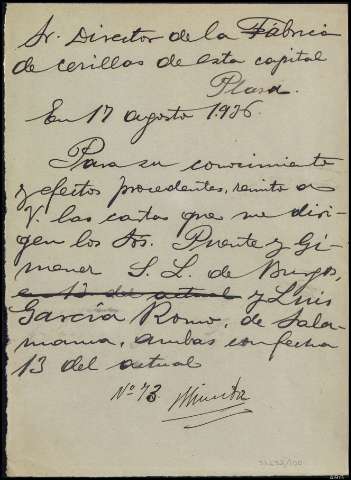 Sr. Director de la Fábrica
de cerillas de esta capital
Plaza.
En 17 agosto 1936.
Para su conocimiento
y efectos procedentes, remito a
V. las cartas que me diri-
gen los Srs. Puente y Gi-
menez S. L. de Burgos,
en 13 del actual y Luis
García Romo, de Sala-
manca, ambas con fecha
13 del actual
Nº 73 Minuta